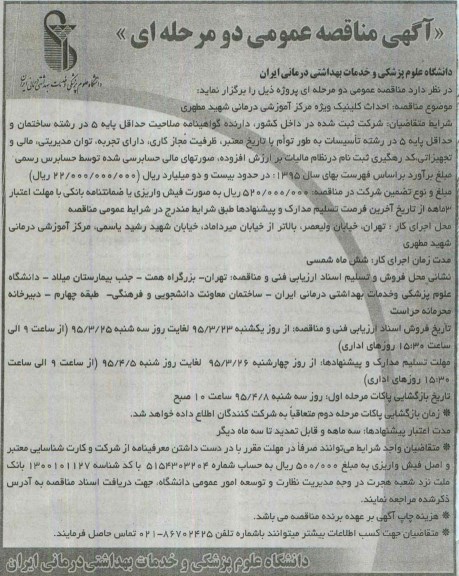 «آگهی مناقصه عمومی دو مرحله ای»
دانشگاه علوم پزشکی و خدمات بهداشتی درمانی ایران
در نظر دارد مناقصه عمومی دو مرحله ای پروژه ذیل را برگزار نماید:
موضوع مناقصه: احداث کلینیک ویژه مرکز آموزشی درمانی شهید مطهری
شرایط متقاضیان: شرکت ثبت شده در داخل کشور، دارنده گواهینامه صلاحیت حداقل پایه ۵ در رشته ساختمان و
حداقل پایه ۵ در رشته تأسیسات به طور توأم با تاریخ معتبر، ظرفیت مجاز کاری، دارای تجربه، توان مدیریتی، مالی و
تجهیزاتی،کد رهگیری ثبت نام درنظام مالیات بر ارزش افزوده، صورتهای مالی حسابرسی شده توسط حسابرس رسمی
مبلغ برآورد براساس فهرست بهای سال ۱۳۹۵: در حدود بیست و دو میلیارد ریال (۲۲/۰۰۰/۰۰۰/۰۰۰ ریال)
مبلغ و نوع تضمین شرکت در مناقصه: ۵۲۰/۰۰۰/۰۰۰ ریال به صورت فیش واریزی یا ضمانتنامه بانکی با مهلت اعتبار
۳ماهه از تاریخ آخرین فرصت تسلیم مدارک و پیشنهادها طبق شرایط مندرج در شرایط عمومی مناقصه
محل اجرای کار : تهران، خیابان ولیعصر، بالاتر از خیابان میرداماد، خیابان شهید رشید یاسمی، مرکز آموزشی درمانی
شهید مطهری
مدت زمان اجرای کار: شش ماه شمسی
نشانی محل فروش و تسلیم اسناد ارزیابی فنی و مناقصه: تهران- بزرگراه همت - جنب بیمارستان میلاد - دانشگاه
علوم پزشکی وخدمات بهداشتی درمانی ایران - ساختمان معاونت دانشجویی و فرهنگی- طبقه چهارم - دبیرخانه
محرمانه حراست
تاریخ فروش اسناد ارزیابی فنی و مناقصه: از روز یکشنبه ۹۵/۳/۲۳ لغایت روز سه شنبه ۹۵/۳/۲۵ (از ساعت ۹ الی
ساعت ۱۵:۳۰ روزهای اداری)
مهلت تسلیم مدارک و پیشنهادها: از روز چهارشنبه ۹۵/۳/۲۶ لغایت روز شنبه ۹۵/۴/۵ (از ساعت ۹ الی ساعت
۱۵:۳۰ روزهای اداری)
تاریخ بازگشایی پاکات مرحله اول: روز سه شنبه ۹۵/۴/۸ ساعت ۱۰ صبح
* زمان بازگشایی پاکات مرحله دوم متعاقباً به شرکت کنندگان اطلاع داده خواهد شد.
مدت اعتبار پیشنهادها: سه ماهه و قابل تمدید تا سه ماه دیگر
* متقاضیان واجد شرایط می‌توانند صرفاً در مهلت مقرر با در دست داشتن معرفینامه از شرکت و کارت شناسایی معتبر
و اصل فیش واریزی به مبلغ ۵۰۰/۰۰۰ ریال به حساب شماره ۵۱۵۴۳۰۳۲۰۴ با کد شناسه ۱۳۰۰۱۰۱۱۲۷ بانک
ملت نزد شعبه هجرت در وجه مدیریت نظارت و توسعه امور عمومی دانشگاه، جهت دریافت اسناد مناقصه به آدرس
ذکرشده مراجعه نمایند.
* هزینه چاپ آگهی بر عهده برنده مناقصه می باشد.
* متقاضیان جهت کسب اطلاعات بیشتر میتوانند باشماره تلفن ۸۶۷۰۲۴۲۵-۰۲۱ تماس حاصل فرمایند.
دانشگاه علوم پزشکی و خدمات بهداشتی‌درمانی ایران